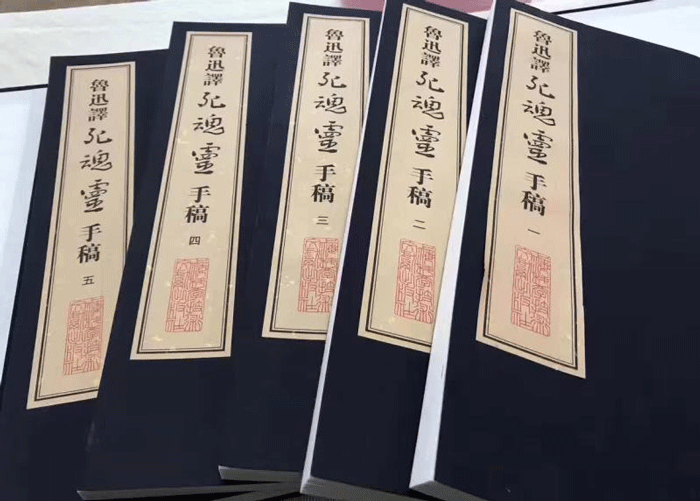 魯迅譯死魂靈手稿 一
魯迅譯死魂靈手稿 二
魯迅譯死魂靈手稿 三
魯迅譯死魂靈手稿 四
魯迅譯死魂靈手稿 五